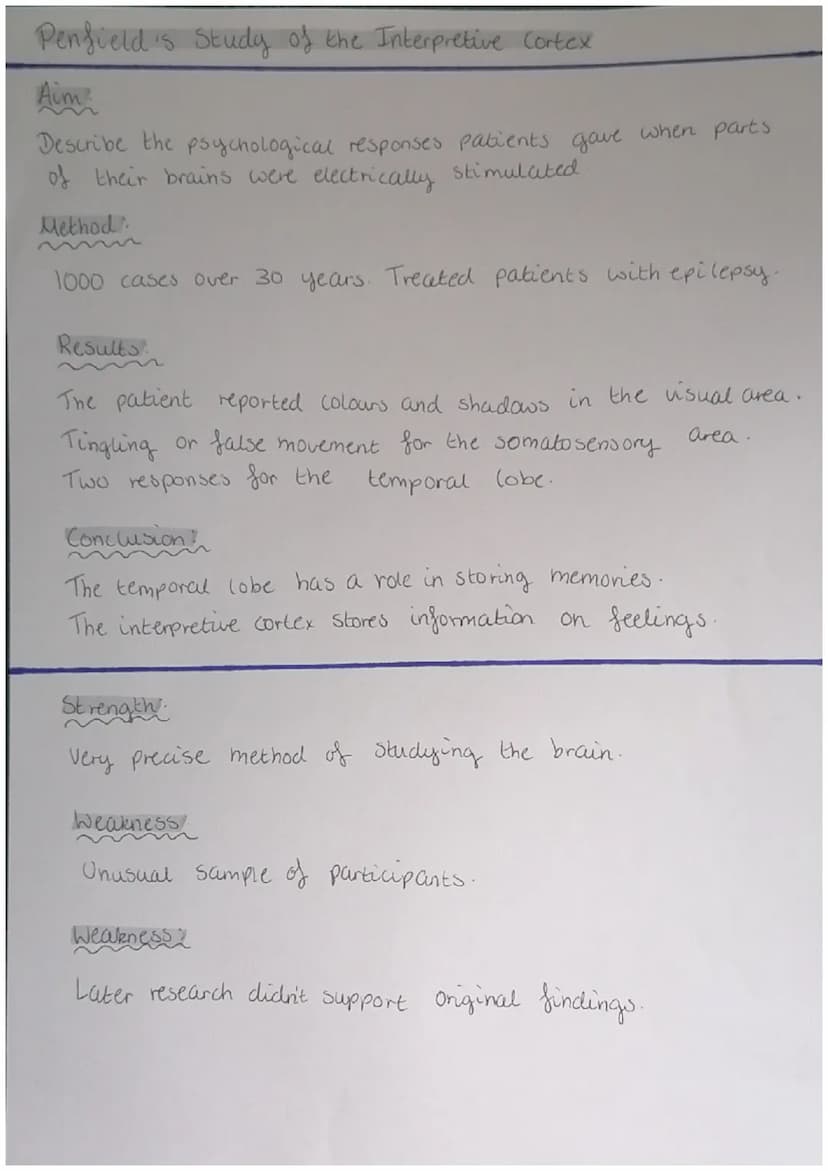 Penfield's Study of the Interpretive Cortex
Aim:
Describe the psychological responses patients gave when parts
of their brains were electrically stimulated
Method:
1000 cases over 30 years. Treated patients with epilepsy.
Results:
The patient reported colours and shadows in the visual area.
Tingling or false movement for the somatosensory area.
Two responses for the temporal lobe.
Conclusion:
The temporal lobe has a role in storing memories.
The interpretive cortex stores information on feelings.
Strength:
Very precise method of studying the brain.
Weakness:
Unusual sample of participants.
Weakness:
Later research didn't support original findings.